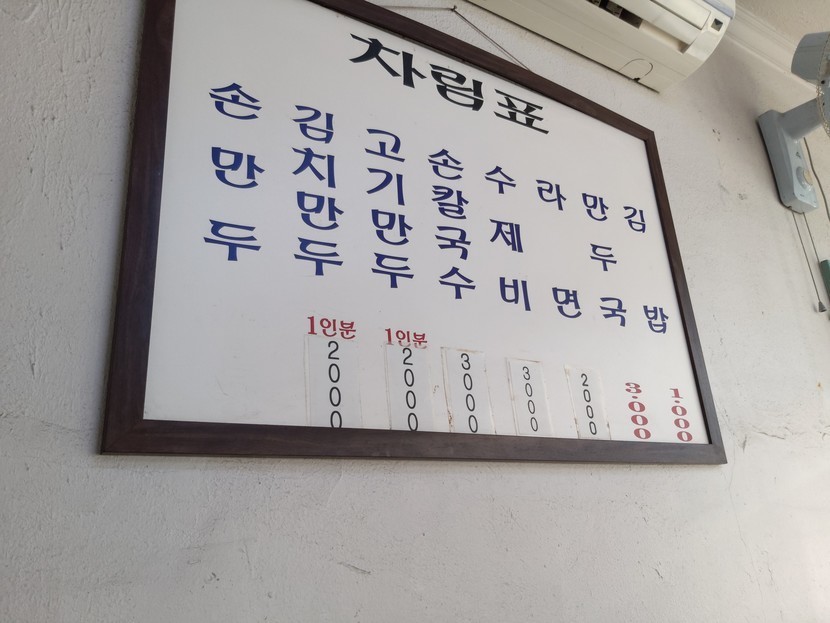 차림표
손만두
김치만두 1인분 2000
고기만두 1인분 2000
손칼국수 3000
수제비 3000
라면 2000
만두국 3.000
김밥 1.000